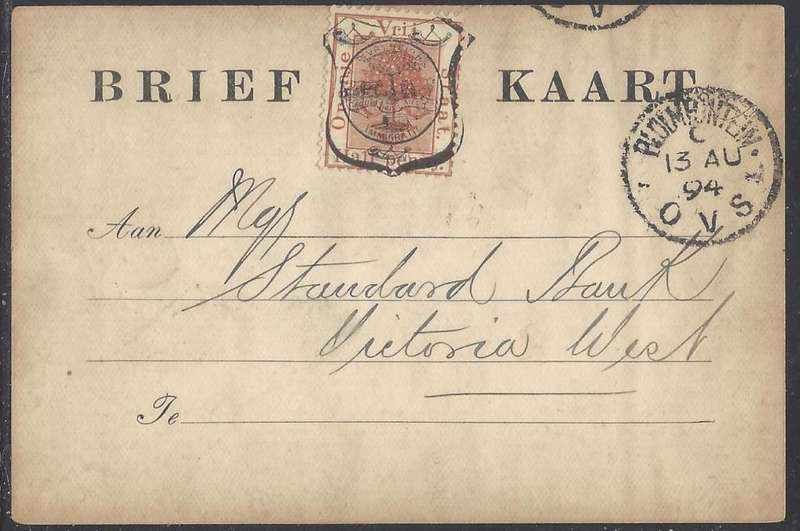 V
Oranje Vrij Staat.
Half Penny.
BRIEF KAART
BLOEMFONTEIN.
C
13 AU
94
OVS
Aan Mgr
Standard Bank
Victoria West
Te